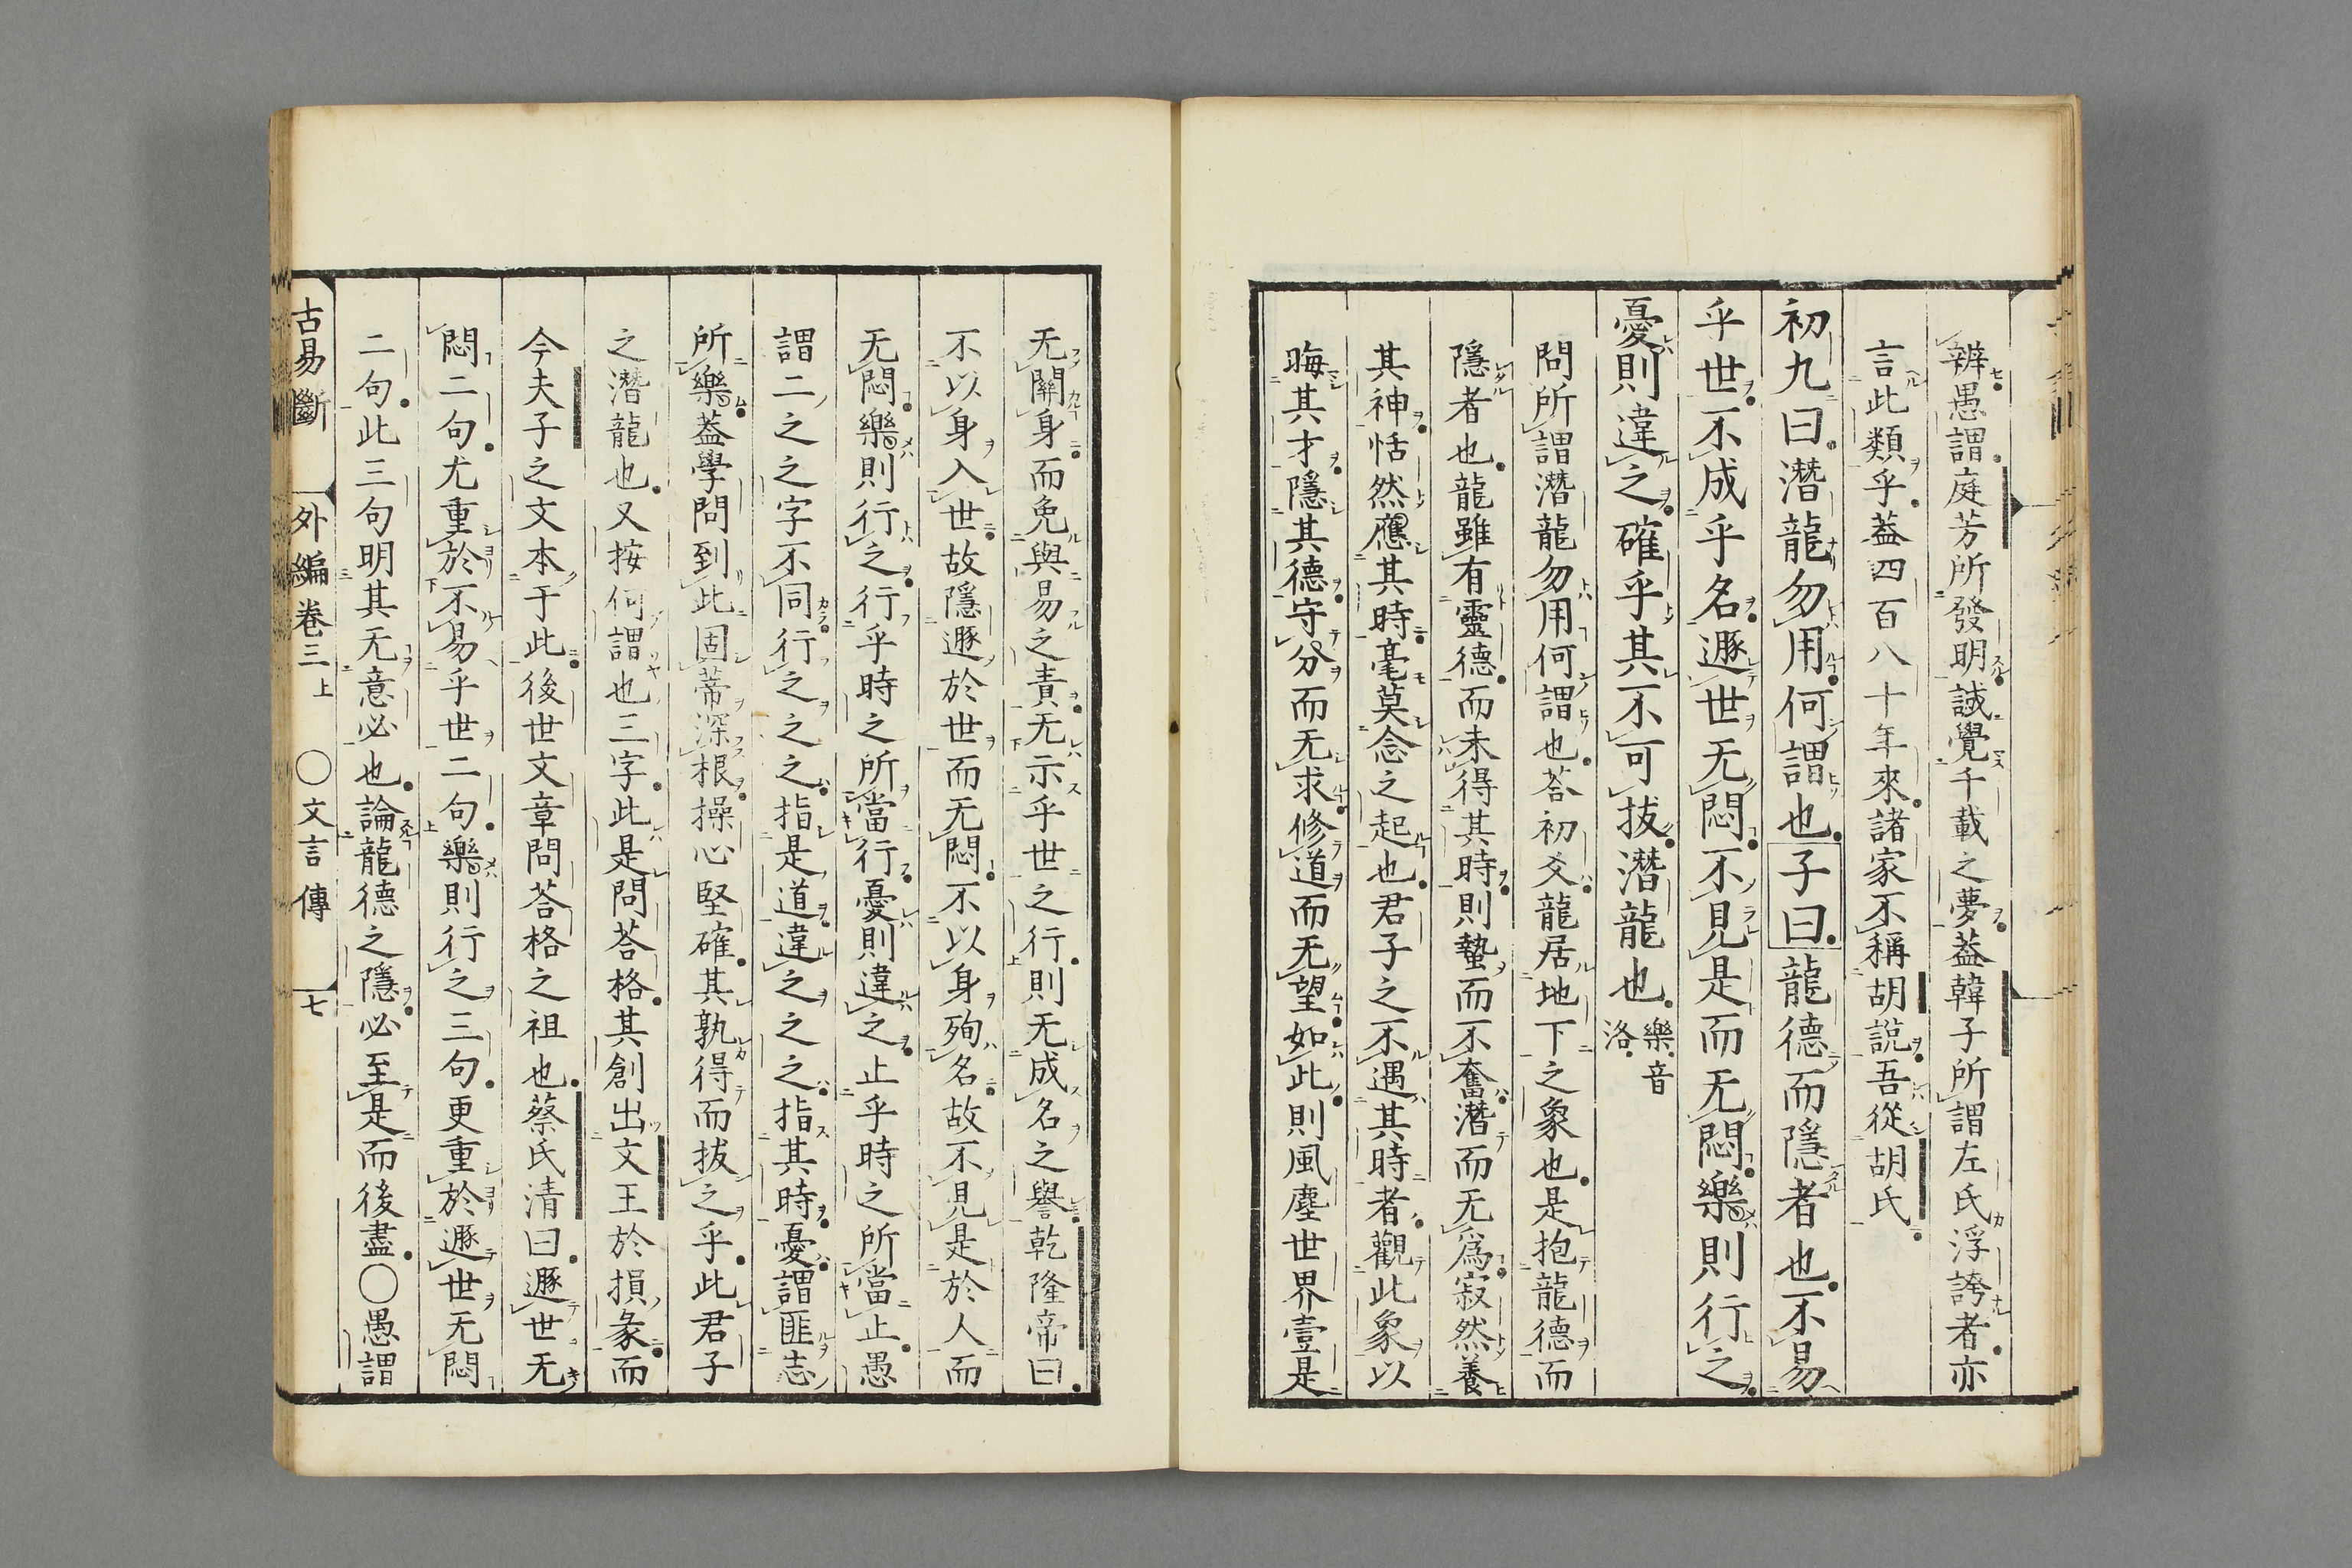 辨愚謂庭芳所發明誠覺千載之夢蓋韓子所謂左氏浮誇者亦
言此類乎蓋四百八十年來諸家不稱胡說吾從胡氏
初九曰潛龍勿用何謂也子曰龍德而隱者也不易
乎世不成乎名遯世无悶不見是而无悶樂則行之
憂則違之確乎其不可拔潛龍也樂音洛
問所謂潛龍勿用何謂也荅初爻龍居地下之象也是抱龍德而
隱者也龍雖有靈德而未得其時則蟄而不奮潛而无爲寂然養
其神恬然應其時毫莫念之起也君子之不遇其時者觀此象以
晦其才隱其德守分而无求修道而无望如此則風塵世界壹是
无關身而免與易之責无示乎世之行則无成名之譽乾隆帝曰
不以身入世故隱遯於世而无悶不以身殉名故不見是於人而
无悶樂則行之行乎時之所當行憂則違之止乎時之所當止愚
謂二之之字不同行之之之指是道違之之之指其時憂謂匪志
所樂蓋學問到此固蒂深根操心堅確其孰得而拔之乎此君子
之潛龍也又按何謂也三字此是問荅格其創出文王於損彖而
今夫子之文本于此後世文章問荅格之祖也蔡氏清曰遯世无
悶二句尤重於不易乎世二句樂則行之三句更重於遯世无悶
二句此三句明其无意必也論龍德之隱必至是而後盡○愚謂
古易斷 外編卷三上 ○文言傳 七